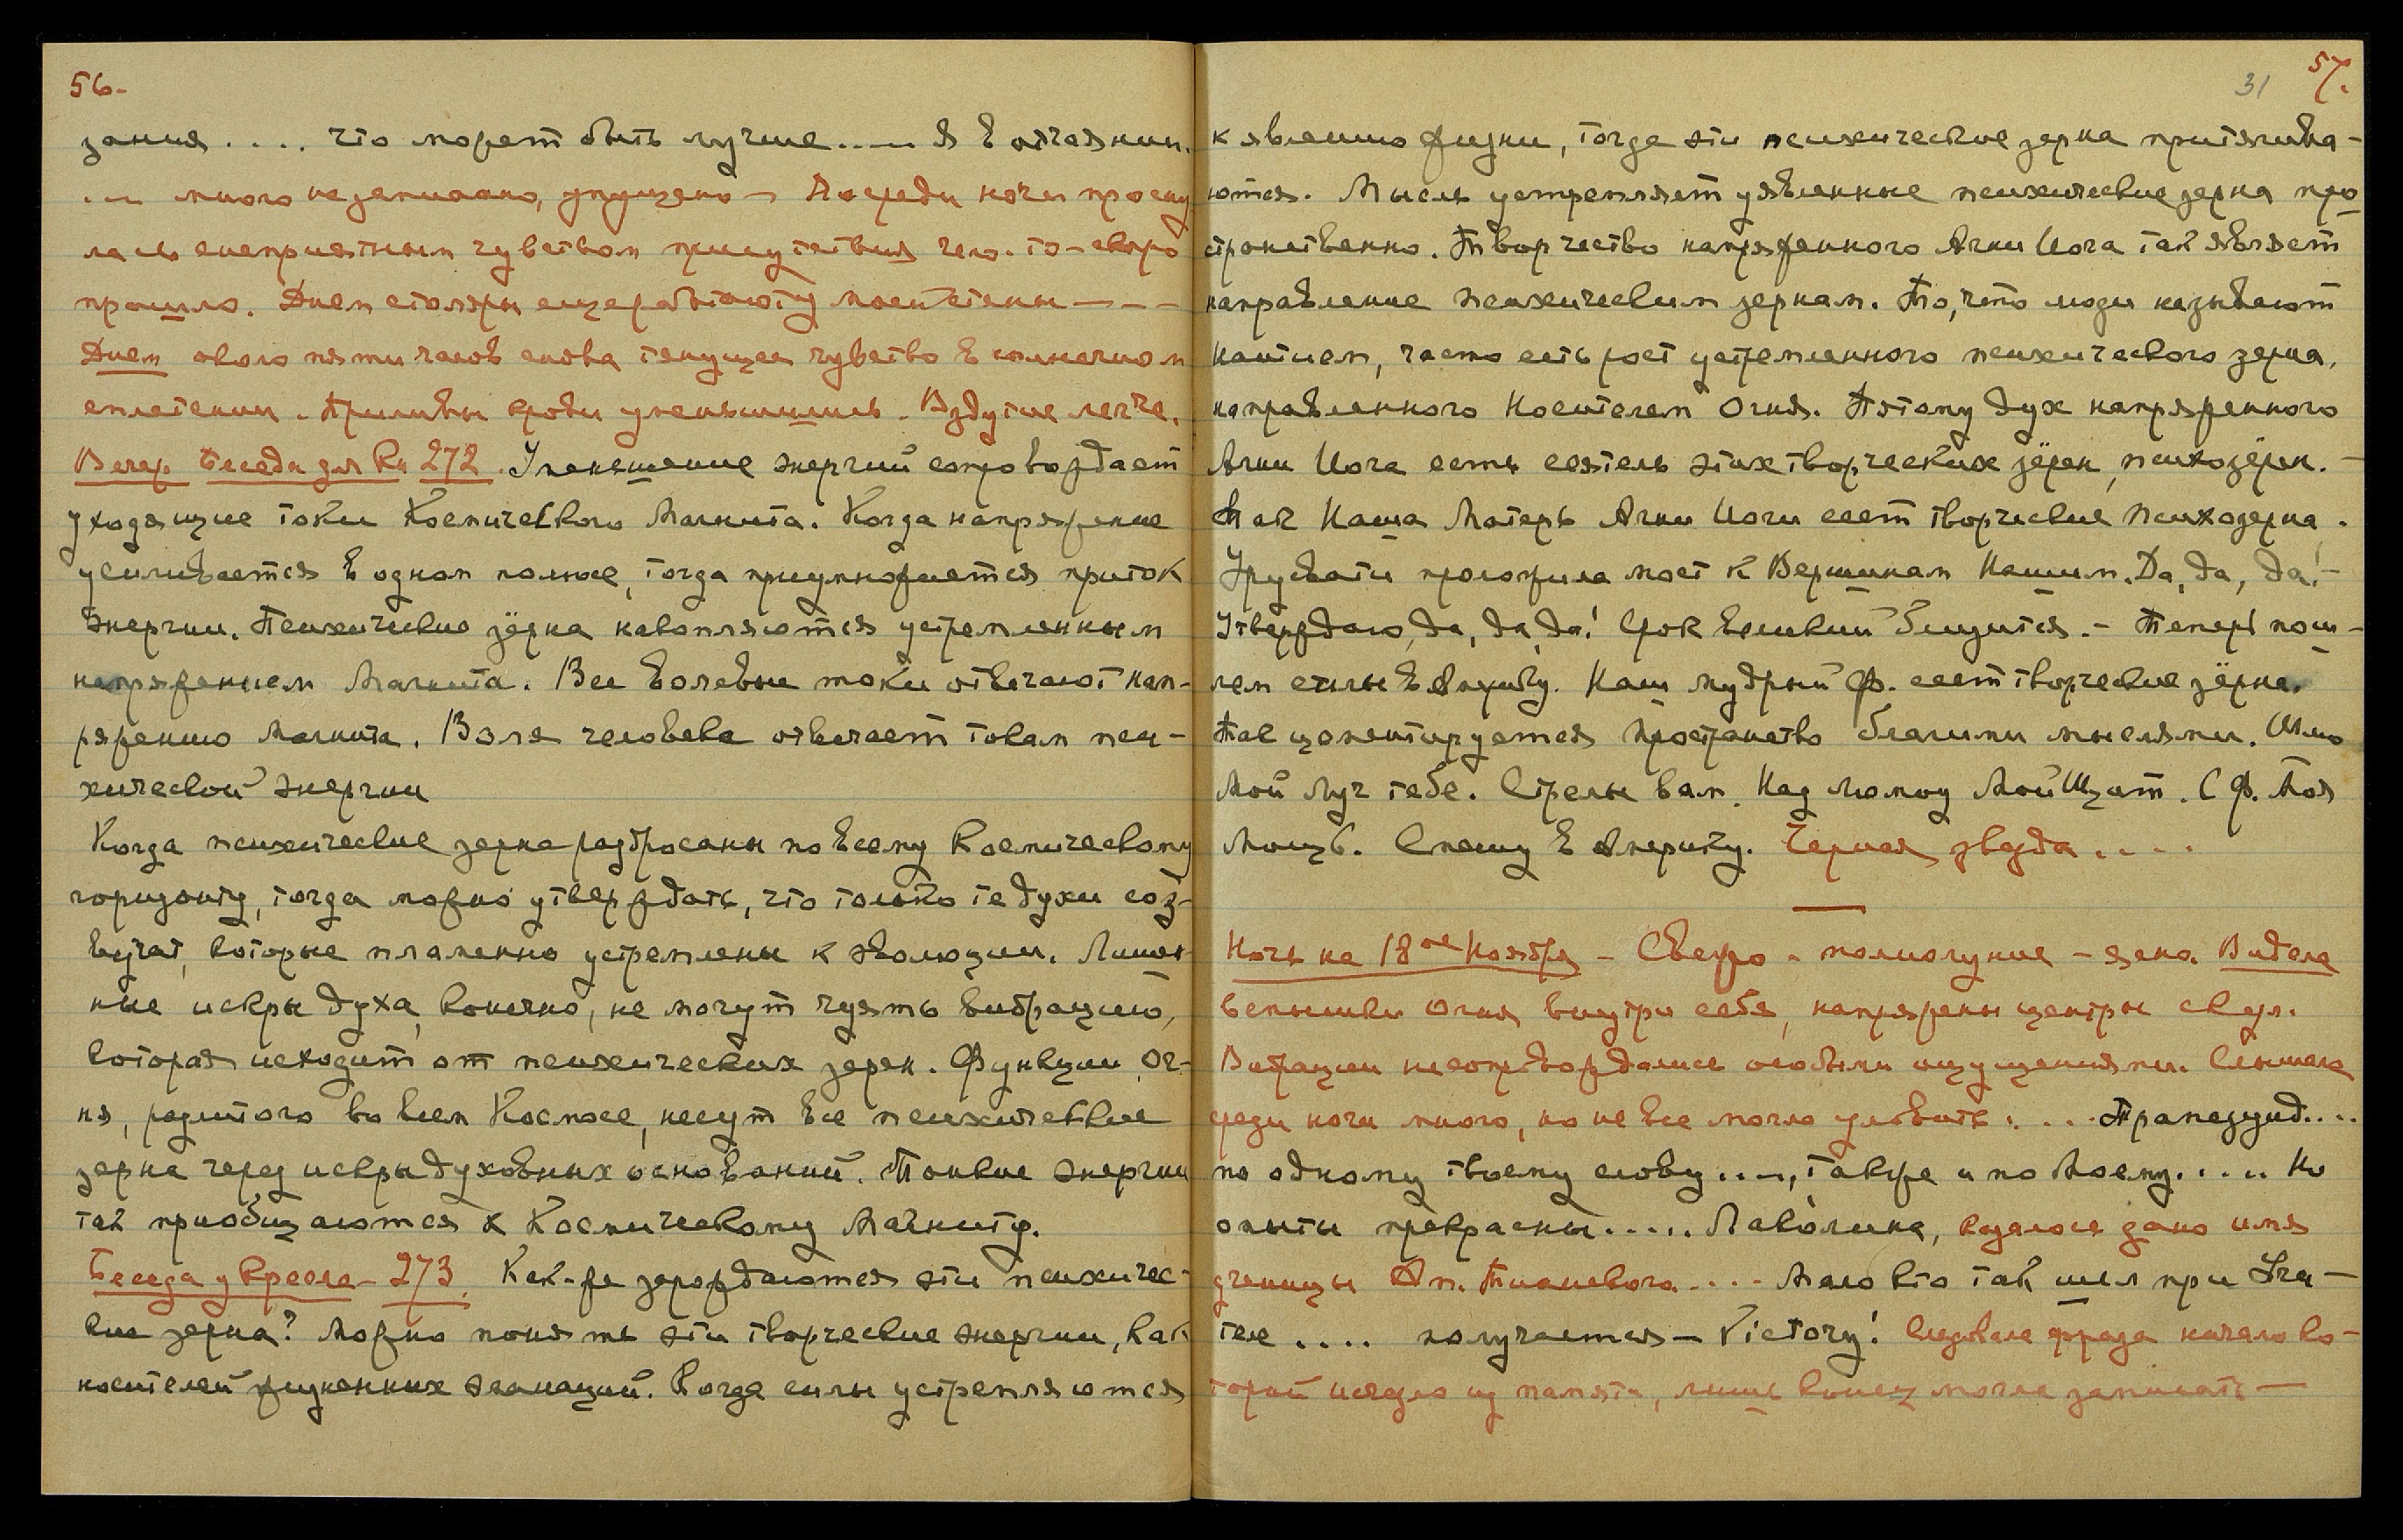 56.
зания .... что может быть лучше .... Я в отчаянии.
... много незаписано, упущено — Посреди ночи просну
лась с неприятным чувством присутствия чего-то — скоро
прошло. Днем столяры еще работают у моей стены — — —
Днем около пяти часов снова тянущее чувство в солнечном
сплетении. Приливы крови уменьшились. Вздутие легче.
Вечер. Беседа для Кн 272. Уменьшение энергий сопровождает
уходящие токи Космического Магнита. Когда напряжение
усиливается в одном полюсе, тогда приумножается приток
энергии. Психические зёрна накопляются устремленным
напряжением Магнита. Все волевые токи отвечают нап-
ряжению Магнита. Воля человека отвечает токам пси-
хической энергии
Когда психические зерна разбросаны по всему Космическому
горизонту, тогда можно утверждать, что только те духи соз-
вучат, которые пламенно устремлены к эволюции. Лишен-
ные искры духа, конечно, не могут чуять вибрацию,
которая исходит от психических зерен. Функции Ог-
ня, разлитого во всем Космосе, несут все психические
зерна через искры духовных оснований. Тонкие энергии
так приобщаются к Космическому Магниту.
Беседа у Кресла — 273. Как-же зарождаются эти психичес-
кие зерна? Можно понять эти творческие энергии, как
носителей жизненных эманаций. Когда силы устремляются
31
57.
к явлению жизни, тогда эти психические зерна притягива-
ются. Мысль устремляет уявленные психические зерна про
странственно. Творчество напряженного Агни Йога так являет
направление психическим зернам. То, что люди называют
наитием, часто есть рост устремленного психического зерна,
направленного Носителем Огня. Потому дух напряженного
Агни Йога есть сеятель этих творческих зёрен, психозёрен. —
Так Наша Матерь Агни Йоги сеет творческие психозерна.
Урусвати проложила мост к Вершинам Нашим. Да, да, да! —
Утверждаю, да, да, да! Срок великий близится. — Теперь пош-
лем стрелы в Америку. Наш мудрый Ф. сеет творческие зёрна.
Так цементируется пространство благими мыслями. Шлю
Мой Луч тебе. Стрелы вам. Над Люмоу Мой Щит. С Ф. Моя
Мощь. Спешу в Америку. Черная звезда ....
Ночь на 18ое Ноября — Свежо — полнолуние — ясно. Видела
вспышки Огня внутри себя, напряжены центры
Вибрации несопровождались особыми ощущениями. Слышала
среди ночи много, но не все могла уловить: ... Трапезунд....
по одному твоему слову ...., также и по Моему. .... Но
опыты прекрасны ..... Паволина, казалось дано имя
ученицы Ап. Тианского .... Мало кто так шел при Учи-
теле .... получается — Victory! Следовала фраза начало ко-
торой исчезло из памяти, лишь конец могла записать —